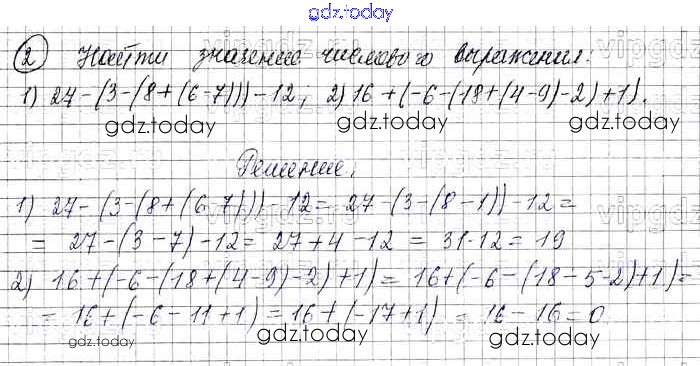 gdz.today
2 Найти значение числового выражения.
1) 27-(3-(8+(6-7)))-12; 2) 16+(-6-(18+(4-9)-2)+1).
gdz.today gdz.today
Решение.
1) 27-(3-(8+(6-7)))-12= 27-(3-(8-1))-12=
= 27-(3-7)-12= 27+4-12= 31-12=19
2) 16+(-6-(18+(4-9)-2)+1)= 16+(-6-(18-5-2)+1)=
= 16+(-6-11+1)=16+(-17+1) = 16-16=0
gdz.today gdz.today gdz.today